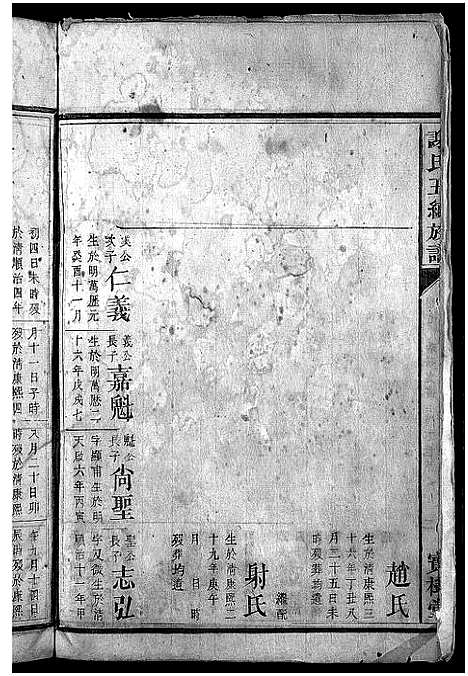 謝氏五續族譜
寶樹堂
趙氏
生於清康熙三
十六年丁丑八
月三十五日未
時殁葬均遺
繼配
尉氏
生於清康熙二
十九年庚午
月 日 時
殁葬均遺
英公
次子
仁義
生於明萬歷元
年癸酉十一月
義公
長子
嘉魁
生於明萬歷二
十六年戊戌七
魁公
長子
尙聖
字 甫生於明
天啟六年丙寅
聖公
長子
志弘
字又微生於清
順治十一年甲
初四日未時殁
於清順治四年
月十一日子時
殁於清康熙四
八月二十日卯
時殁於清康熙
午九月十四日
辰時殁於康熙